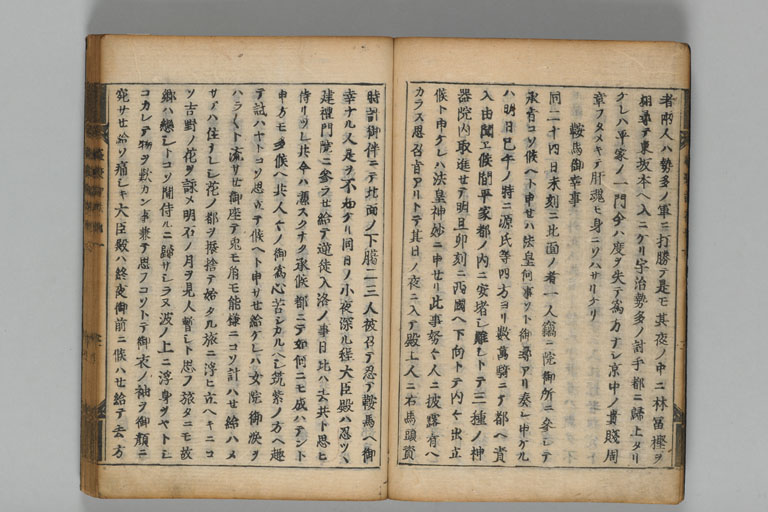 者兩人ハ勢多ノ軍ニ打勝テ是モ其夜ノ中ニ林冨樫ヲ
相尋テ東坂本ヘ入ニケリ宇治勢多ノ討手都ニ歸上タリ
ケレハ平家ノ一門今ハ度ヲ失テ爲方ナシ京中ノ貴賤周
章フタメキテ肝魂モ身ニソハサリケリ
鞍馬御幸事
同二十四日未刻ニ北面ノ者一人竊ニ院御所ニ參シテ
承旨コソ候ヘト申セハ法皇何事ソト御尋アリ奏シ申ケル
ハ明日巳午ノ時ニ源氏等四方ヨリ數萬騎ニテ都ヘ責
入由聞エ候間平家都ノ内ニ安堵シ難シトテ三種ノ神
器院内取進セテ明旦卯刻ニ西國ヘ下向トテ内々出立
候ト申ケレハ法皇神妙ニ申セリ此事努々人ニ披露有ヘ
カラス思召旨アリトテ其日ノ夜ニ入テ殿上人ニ右馬頭資
時計御伴ニテ北面ノ下臈二三人被召テ忍テ鞍馬ヘ御
幸ナル人是ヲ不知ケリ同日ノ小夜深ル程大臣殿ハ忍ツヽ
建禮門院ニ參ラセ給テ逆徒入洛ノ事日比ハ去共ト思ヒ
侍リツレ共今ハ憑スクナク承候都ニテ如何ニモ成ハテント
申方モ多候ヘ共人々ノ御爲心苦シカルヘシ筑紫ノ方ヘ趣
テ試ハヤトコソ思立テ候ヘト申サセ給ケレハ女院御涙ヲ
ハラ〳〵ト流サせ御座テ兎モ角モ能樣ニコソ計ハせ給ハメ
サテハ住ナレシ花ノ都ヲ振捨テ始タル旅ニ浮ヒ立ヘキニコ
ソ吉野ノ花ヲ詠メ明石ノ月ヲ見人暫シト思フ旅タニモ故
郷ハ戀シトコソ聞侍ルニ跡サシラヌ波ノ上ニ浮身ヲヤトシ
コカレテ物ヲ歎カン事兼テ思フコソトテ御衣ノ袖ヲ御顔ニ
宛サせ給ソ痛シキ大臣殿ハ終夜御前ニ候ハせ給テ去方